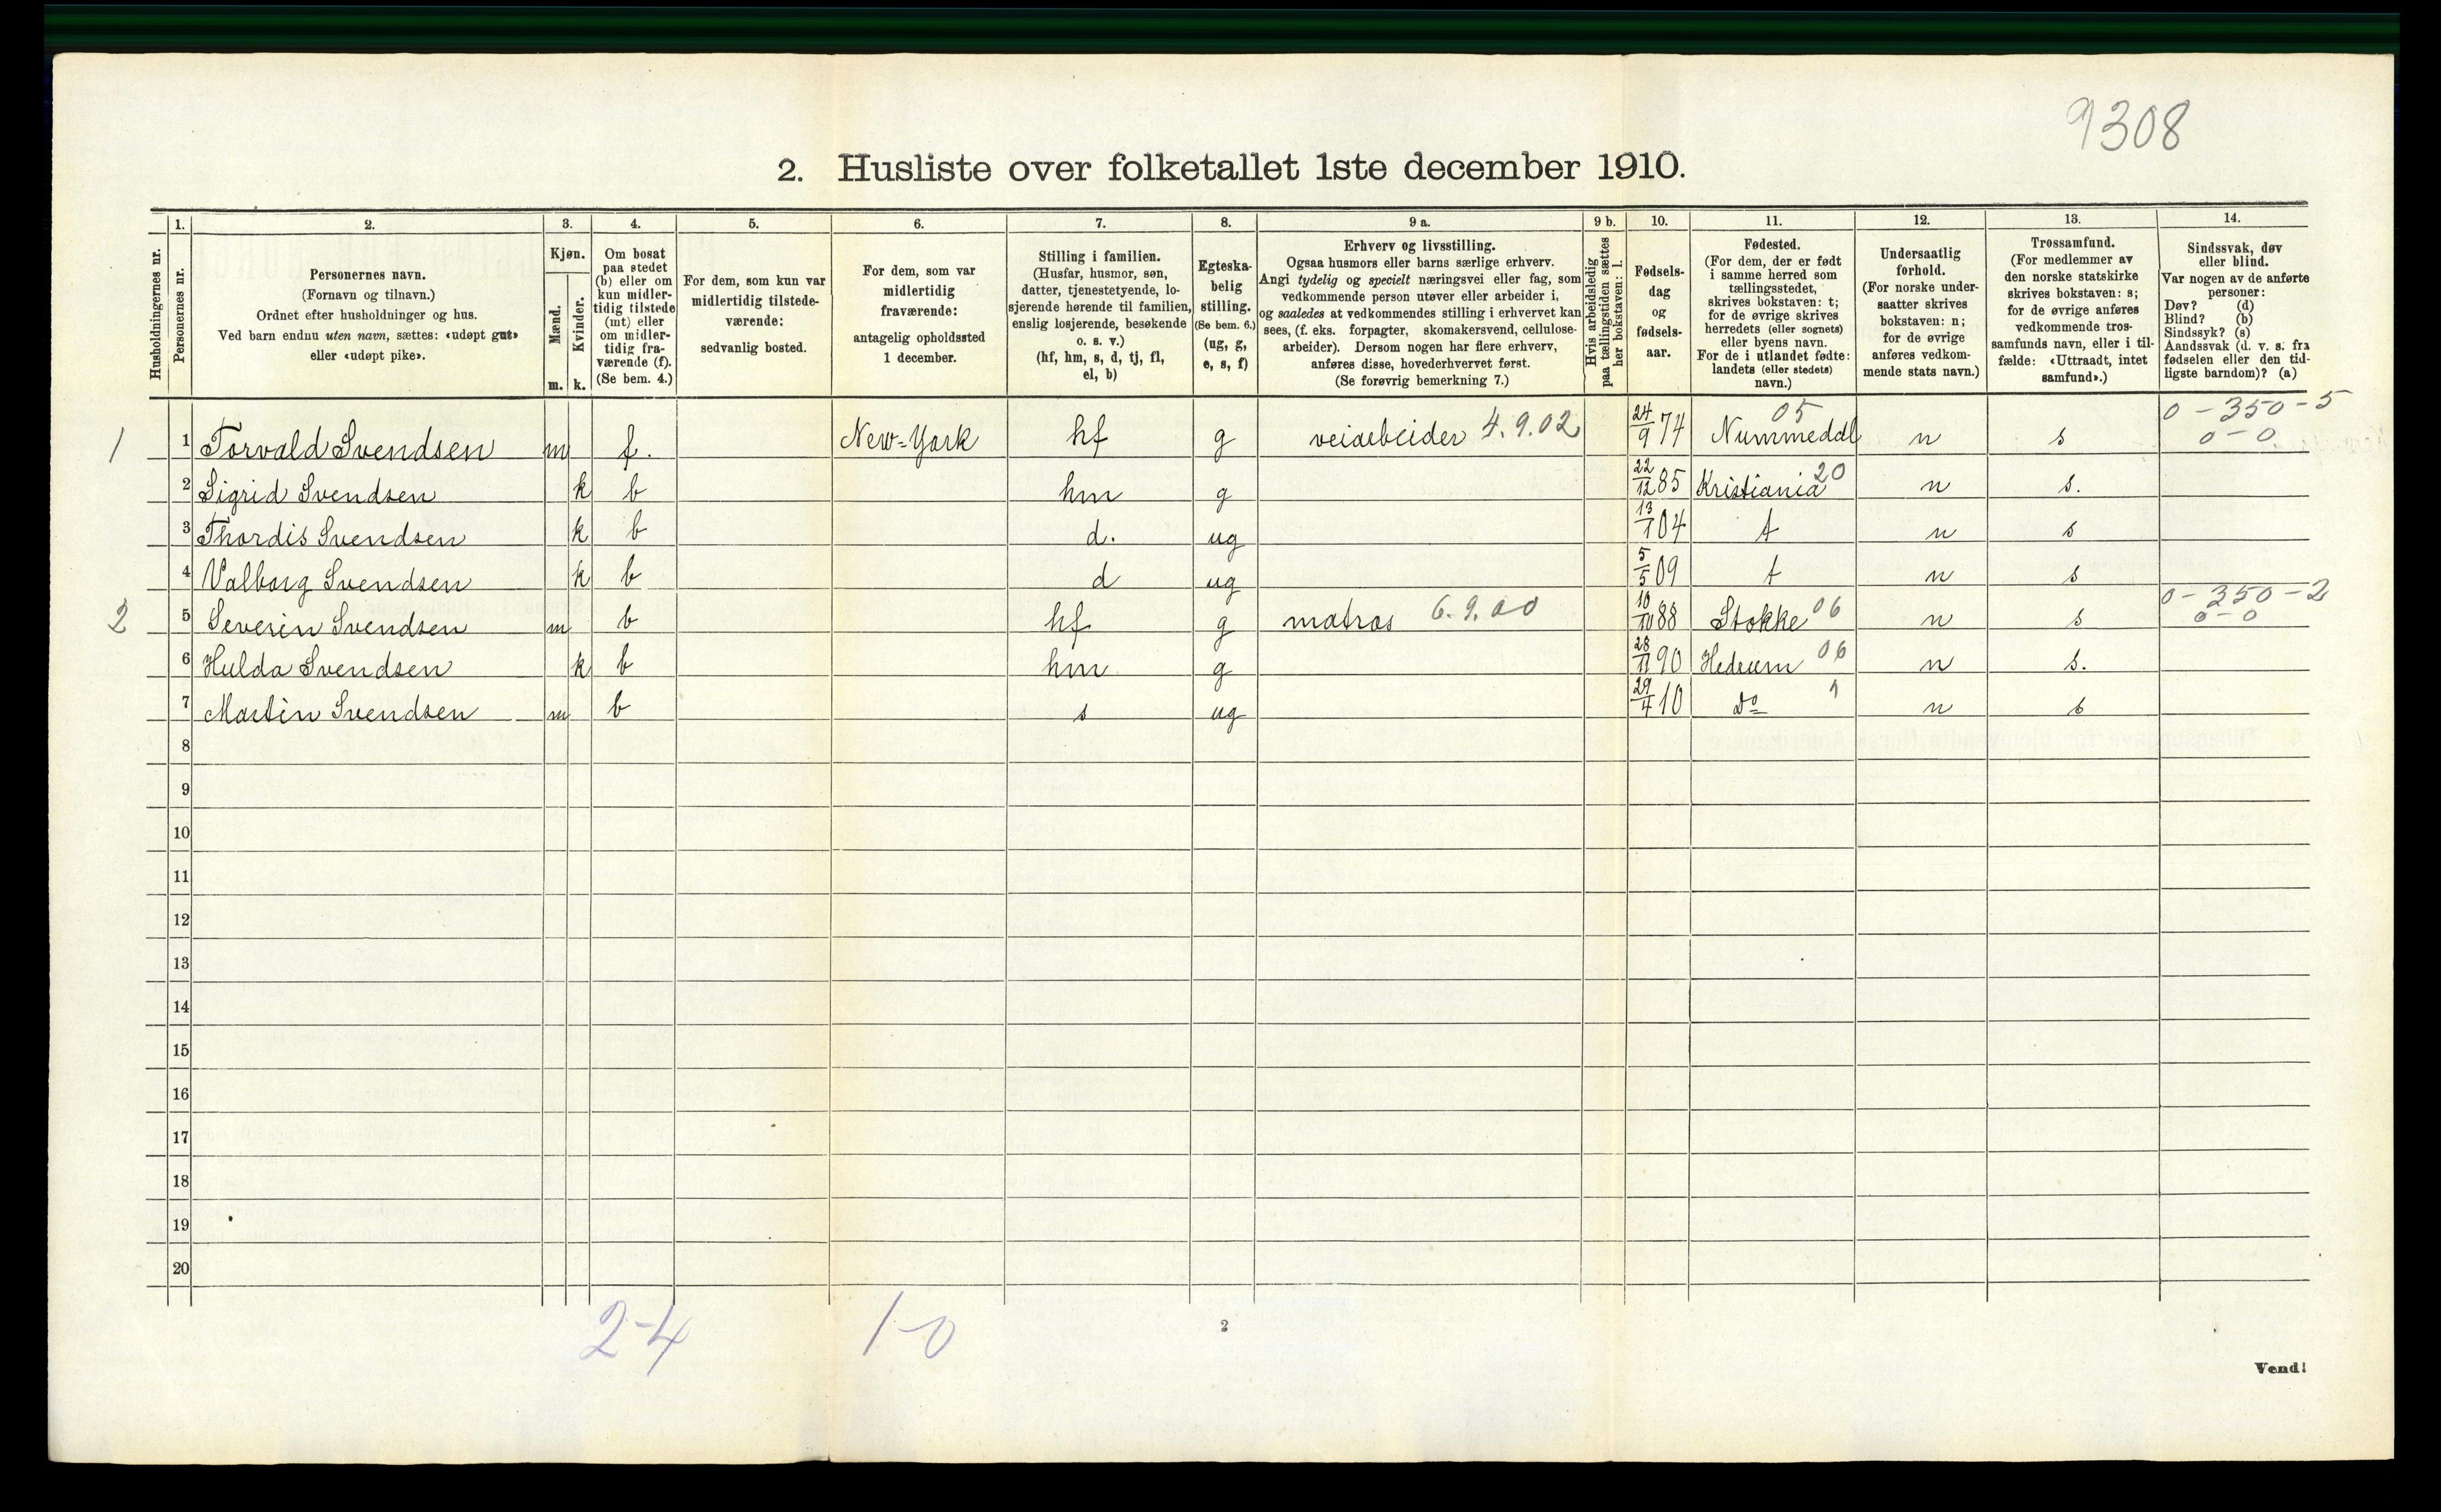 9308
2. Husliste over folketallet 1ste december 1910.
Husholdningernes nr.
1. Personernes nr.
2. Personernes navn.
(Fornavn og tilnavn.)
Ordnet efter husholdninger og hus.
Ved barn endnu uten navn, sættes: «udøpt gut»
eller «udøpt pike».
3. Kjøn.
Mænd. m.
Kvinder. k.
4. Om bosat
paa stedet
(b) eller om
kun midler-
tidig tilstede
(mt) eller
om midler-
tidig fra-
værende (f).
(Se bem. 4.)
5. For dem, som kun var
midlertidig tilstede-
værende:
sedvanlig bosted.
6. For dem, som var
midlertidig
fraværende:
antagelig opholdssted
1 december.
7. Stilling i familien.
(Husfar, husmor, søn,
datter, tjenestetyende, lo-
sjerende hørende til familien,
enslig losjerende, besøkende
o. s. v.)
(hf, hm, s, d, tj, fl,
el, b)
8. Egteska-
belig
stilling.
(Se bem. 6.)
(ug, g,
e, s, f)
9 a. Erhverv og livsstilling.
Ogsaa husmors eller barns særlige erhverv.
Angi tydelig og specielt næringsvei eller fag, som
vedkommende person utøver eller arbeider i,
og saaledes at vedkommendes stilling i erhvervet kan
sees, (f. eks. forpagter, skomakersvend, cellulose-
arbeider). Dersom nogen har flere erhverv,
anføres disse, hovederhvervet først.
(Se forøvrig bemerkning 7.)
9 b. Hvis arbeidsledig
paa tællingstiden sættes
her bokstaven: l.
10. Fødsels-
dag
og
fødsels-
aar.
11. Fødested.
(For dem, der er født
i samme herred som
tællingsstedet,
skrives bokstaven: t;
for de øvrige skrives
herredets (eller sognets)
eller byens navn.
For de i utlandet fødte:
landets (eller stedets)
navn.)
12. Undersaatlig
forhold.
(For norske under-
saatter skrives
bokstaven: n;
for de øvrige
anføres vedkom-
mende stats navn.)
13. Trossamfund.
(For medlemmer av
den norske statskirke
skrives bokstaven: s;
for de øvrige anføres
vedkommende tros-
samfunds navn, eller i til-
fælde: «Uttraadt, intet
samfund».)
14. Sindssvak, døv
eller blind.
Var nogen av de anførte
personer:
Døv? (d)
Blind? (b)
Sindssyk? (s)
Aandssvak (d. v. s. fra
fødselen eller den tid-
ligste barndom)? (a)
1 1 Torvald Svendsen m f. New-York hf g veiarbeider 4.9.02 24/9 74 Nummedal 05 n s 0-350-5 0-0
2 Sigrid Svendsen k b hm g 22/12 85 Kristiania 20 n s.
3 Thordis Svendsen k b d. ug 13/1 04 t n s
4 Valborg Svendsen k b d ug 5/5 09 t n s
2 5 Severin Svendsen m b hf g matros 6.9.00 10/10 88 Stokke 06 n s 0-350-2 0-0
6 Hulda Svendsen k b hm g 28/11 90 Hedrum 06 n s.
7 Martin Svendsen m b s ug 29/4 10 do n s
8
9
10
11
12
13
14
15
16
17
18
19
20
2-4 1-0
2
Vend!